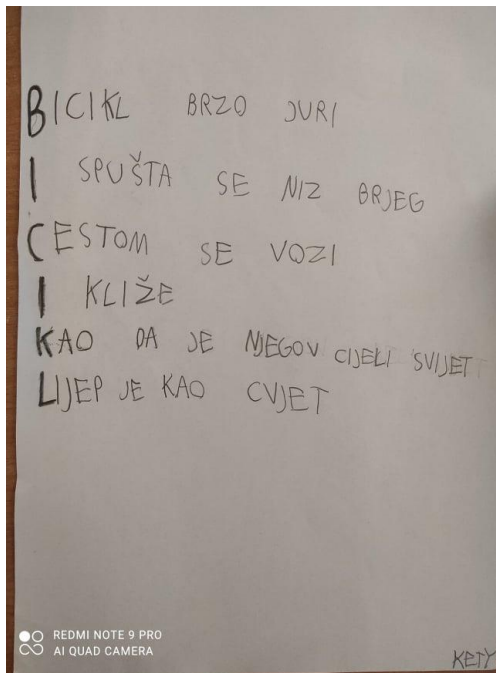 BICIKL BRZO JURI
I SPUŠTA SE NIZ BRJEG
CESTOM SE VOZI
I KLIŽE
KAO DA JE NJEGOV CIJELI SVIJET
LIJEP JE KAO CVJET
REDMI NOTE 9 PRO
AI QUAD CAMERA
KETY